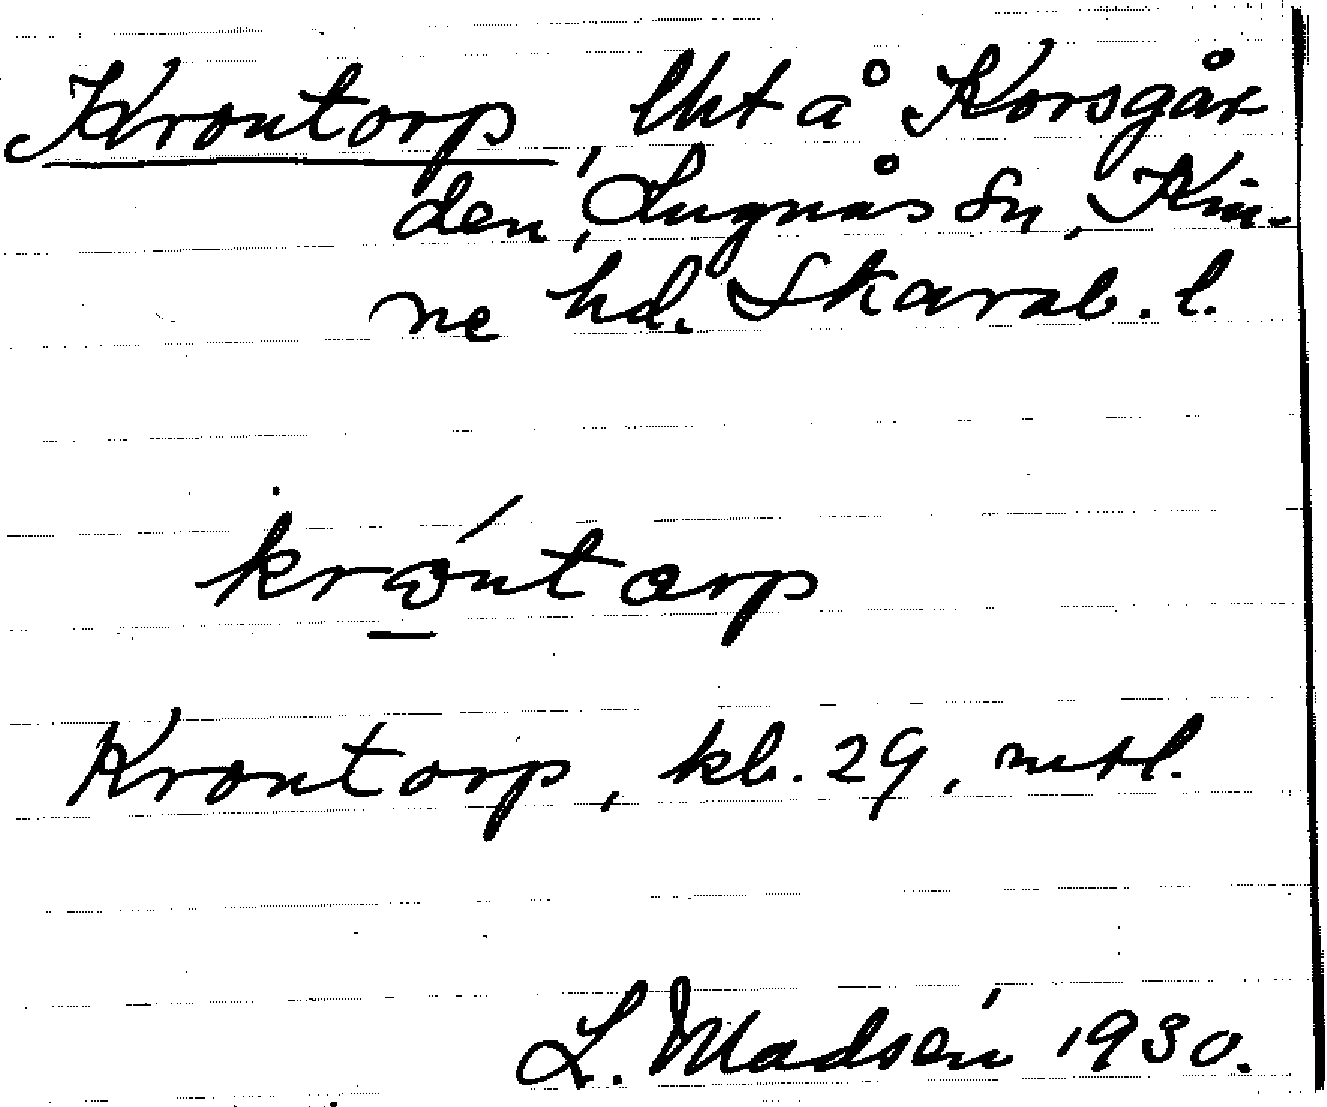 Krontorp, lht å Korsgår
den, Lugnås sn, Kin-
ne hd. Skarab. l.
króntorp
Krontorp, kb. 29, mtl.
L. Madsén 1930.